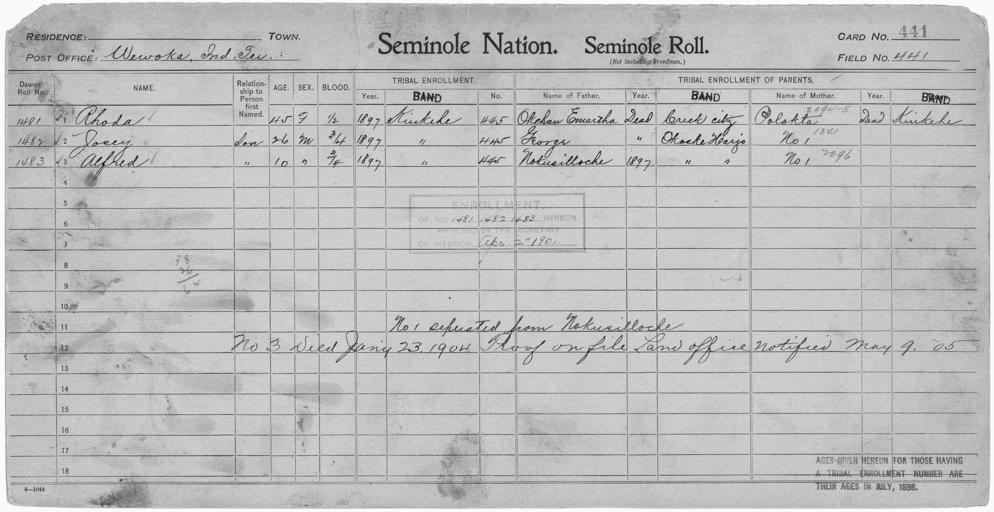 RESIDENCE: TOWN. CARD NO. 441
POST OFFICE: Wewoka, Ind. Ter. Seminole Nation. Seminole Roll. FIELD NO. 441
(Not including Freedmen.)
Dawes Roll No. NAME. Relationship to Person first Named. AGE. SEX. BLOOD. TRIBAL ENROLLMENT. TRIBAL ENROLLMENT OF PARENTS.
Year. BAND No. Name of Father. Year. BAND Name of Mother. Year. BAND
1481 1 Rhoda 45 F 1/2 1897 Kinkehe 445 Okchan Emartha Dead Creek city Polokta 2094-5 Dead Kinkehe
1482 2 Josey Son 26 M 3/4 1897 " 445 George " Okoske Harjo No 1 1341
1483 3 Alfred " 10 " 1897 " 445 Nokusilloche 1897 " " No 1 2096
4
5
6
7
8
9
10
ENROLLMENT.
OF NOS. 1481 1482 1483 HEREON
APPROVED BY THE SECRETARY
OF INTERIOR Apr. 2" 1901
38
26
11 No 1 seperated from Nokusilloche
12 No 3 Died Jany 23, 1904. Proof on file Land office notified May 9. 05
13
14
15
16
17
18
AGES GIVEN HEREON FOR THOSE HAVING
A TRIBAL ENROLLMENT NUMBER ARE
THEIR AGES IN JULY, 1898.
6—1044